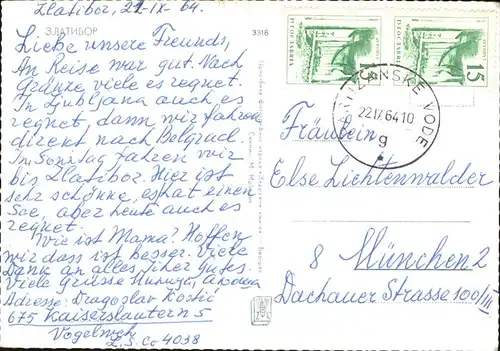 Zlatibor, 21-IX 64.
ЗЛАТИБОР
3318
Liebe unsere Freunds,
An Reise war gut. Nach
Gränze viele es regnet.
In Ljubljana auch es
regnet, dann wir fahren
direkt nach Belgrad.
Im Sonntag fahren wir
bis Zlatibor. Hier ist
sehr schönne, es hat einen
See, aber heute auch es
regnet.
Wie ist Mama? Hoffen
wir dass ist besser. Viele
Dank an alles, hier gutes.
Viele Grüsse
Adresse: Dragoslav Kostić
675 Kaiserslautern 5
Vogelweh
L.S. Co 4038
15
15
22 IX 64 10
g
Fräulein
Else Lichtenwalder
8 München 2
Dachauer Strasse 100/III